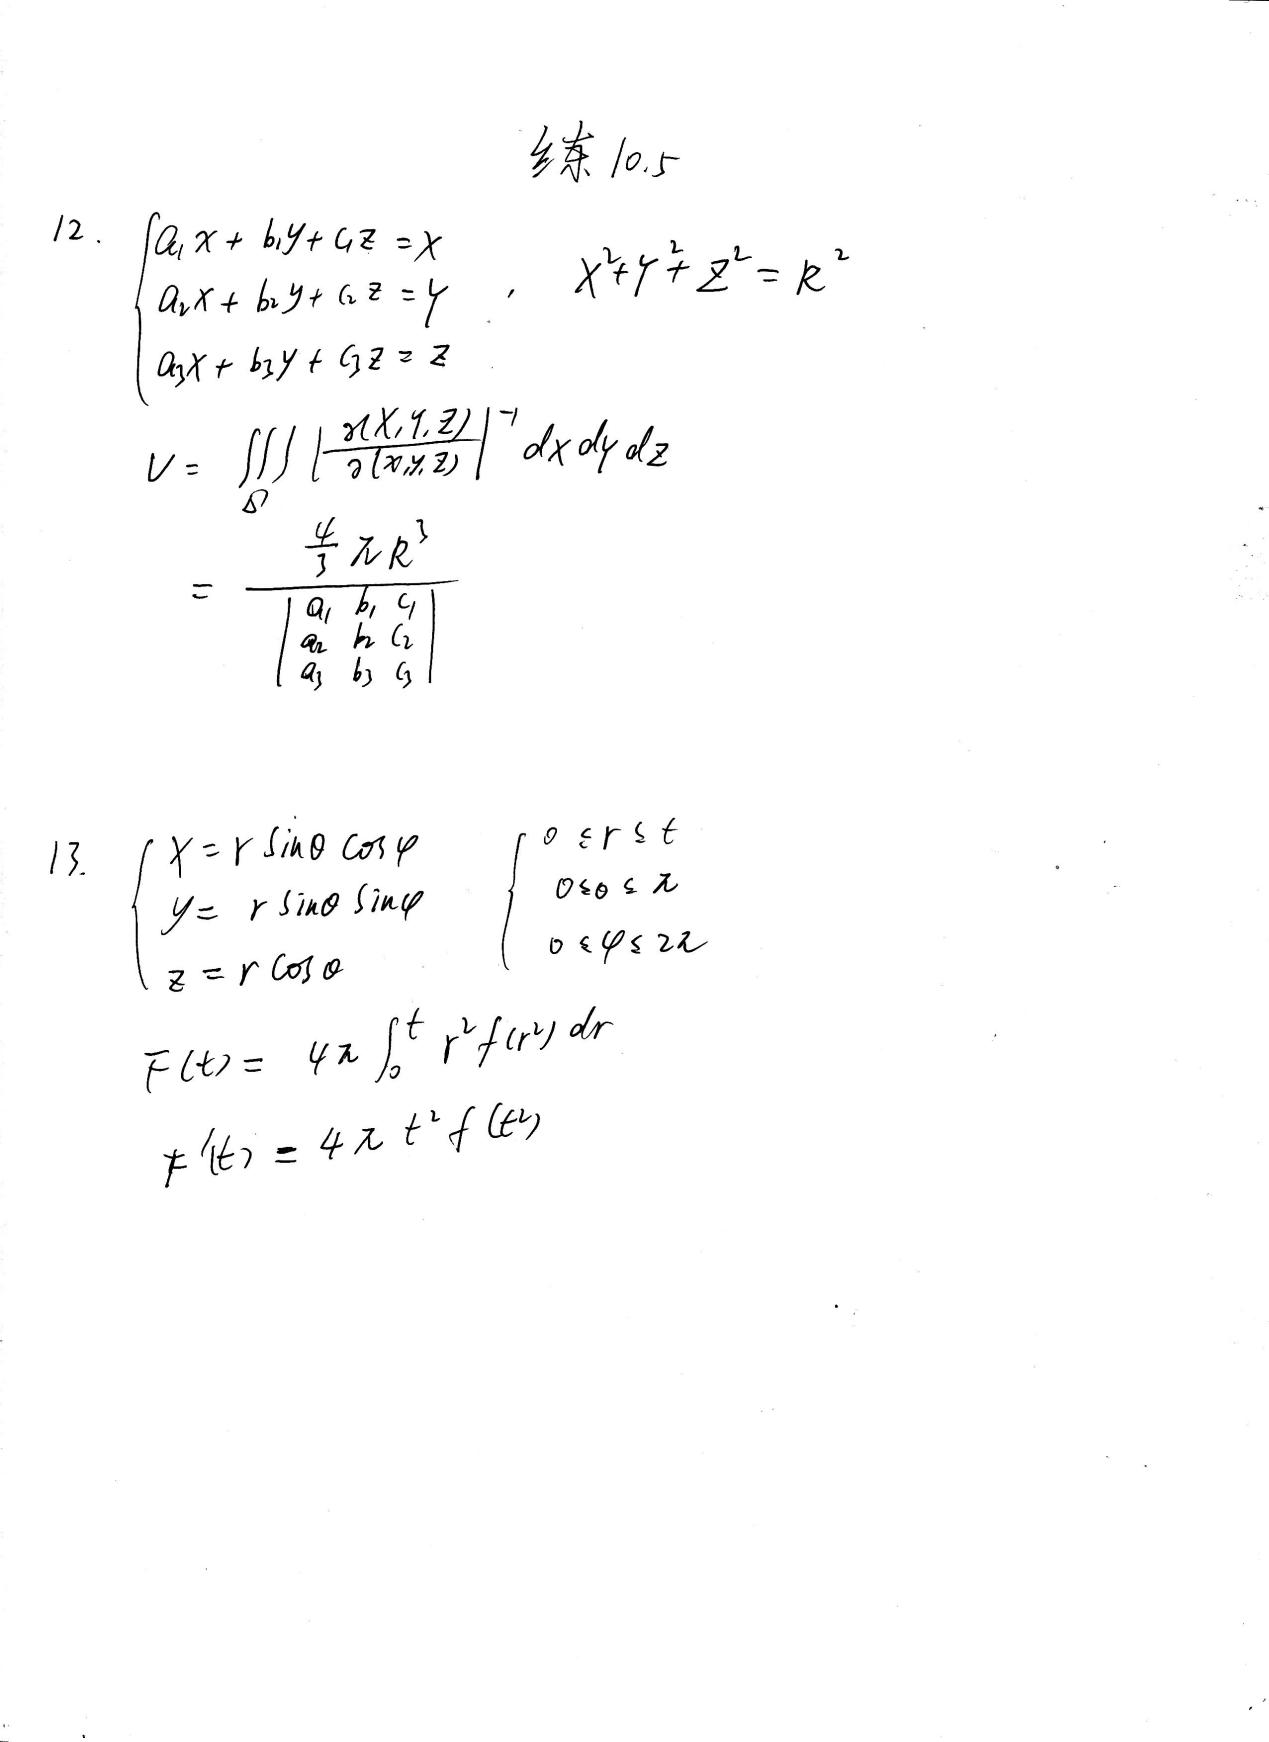 练 10.5
12. { a₁x + b₁y + c₁z = X
a₂x + b₂y + c₂z = Y , X² + Y² + Z² = R²
a₃x + b₃y + c₃z = Z
V = ∭_Ω |∂(X,Y,Z)/∂(x,y,z)|⁻¹ dx dy dz
= (4/3 πR³) /
| a₁ b₁ c₁ |
| a₂ b₂ c₂ |
| a₃ b₃ c₃ |
13. { x = r sinθ cosφ { 0 ≤ r ≤ t
y = r sinθ sinφ 0 ≤ θ ≤ π
z = r cosθ 0 ≤ φ ≤ 2π
F(t) = 4π ∫₀ᵗ r² f(r²) dr
F'(t) = 4π t² f(t²)